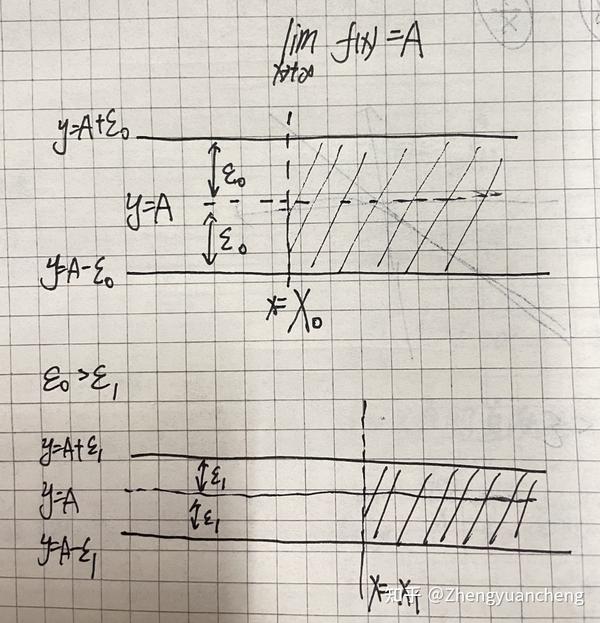 lim f(x) = A
x→+∞
y=A+ε₀
ε₀
y=A
ε₀
y=A-ε₀
x=X₀
ε₀>ε₁
y=A+ε₁
ε₁
y=A
ε₁
y=A-ε₁
x=X₁
知乎 @Zhengyuancheng